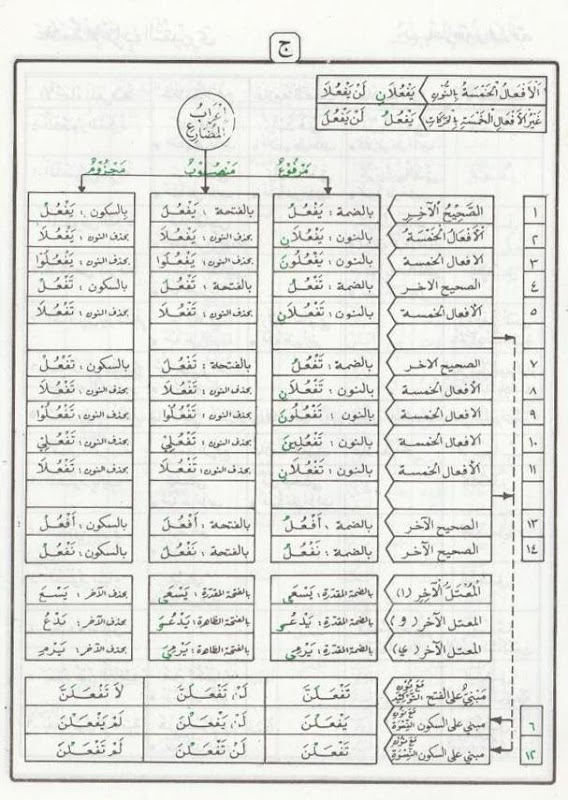 ج
الأَفْعَالُ الْخَمْسَةُ بِالنُّوْنِ يَفْعُلَانِ لَنْ يَفْعُلَا
غَيْرُ الأَفْعَالِ الْخَمْسَةِ بِالْحَرَكَاتِ يَفْعُلُ لَنْ يَفْعُلَ
إِعْرَابُ المُضَارِعِ
مَرْفُوعٌ مَنْصُوبٌ مَجْزُومٌ
١ الصَّحِيْحُ الْآخِرِ بالضمة : يَفْعُلُ بالفتحة : يَفْعُلَ بالسكون : يَفْعُلْ
٢ الأَفْعَالُ الْخَمْسَةُ بالنون : يَفْعُلَانِ بحذف النون : يَفْعُلَا بحذف النون : يَفْعُلَا
٣ الأفعال الخمسة بالنون : يَفْعُلُونَ بحذف النون : يَفْعُلُوا بحذف النون : يَفْعُلُوا
٤ الصحيح الآخر بالضمة : تَفْعُلُ بالفتحة : تَفْعُلَ بالسكون : تَفْعُلْ
٥ الأفعال الخمسة بالنون : تَفْعُلَانِ بحذف النون : تَفْعُلَا بحذف النون : تَفْعُلَا
٧ الصحيح الآخر بالضمة : تَفْعُلُ بالفتحة : تَفْعُلَ بالسكون : تَفْعُلْ
٨ الأفعال الخمسة بالنون : تَفْعُلَانِ بحذف النون : تَفْعُلَا بحذف النون : تَفْعُلَا
٩ الأفعال الخمسة بالنون : تَفْعُلُونَ بحذف النون : تَفْعُلُوا بحذف النون : تَفْعُلُوا
١٠ الأفعال الخمسة بالنون : تَفْعُلِينَ بحذف النون : تَفْعُلِي بحذف النون : تَفْعُلِي
١١ الأفعال الخمسة بالنون : تَفْعُلَانِ بحذف النون : تَفْعُلَا بحذف النون : تَفْعُلَا
١٣ الصحيح الآخر بالضمة : أَفْعُلُ بالفتحة : أَفْعُلَ بالسكون : أَفْعُلْ
١٤ الصحيح الآخر بالضمة : نَفْعُلُ بالفتحة : نَفْعُلَ بالسكون : نَفْعُلْ
المُعْتَلُّ الْآخِرِ (ا) بالضمة المقدرة : يَسْعَى بالفتحة المقدرة : يَسْعَى بحذف الآخر : يَسْعَ
المعتل الآخر (و) بالضمة المقدرة : يَدْعُو بالفتحة الظاهرة : يَدْعُوَ بحذف الآخر : يَدْعُ
المعتل الآخر (ي) بالضمة المقدرة : يَرْمِي بالفتحة الظاهرة : يَرْمِيَ بحذف الآخر : يَرْمِ
مَبْنِيٌّ على الفتح مَعَ نُوْنِ التَّوْكِيْدِ تَفْعَلَنَّ لَنْ تَفْعَلَنَّ لَا تَفْعَلَنَّ
٦ مبني على السكون مَعَ نُوْنِ النِّسْوَةِ يَفْعَلْنَ لَنْ يَفْعَلْنَ لَمْ يَفْعَلْنَ
١٢ مبني على السكون مَعَ نُوْنِ النِّسْوَةِ تَفْعَلْنَ لَنْ تَفْعَلْنَ لَمْ تَفْعَلْنَ